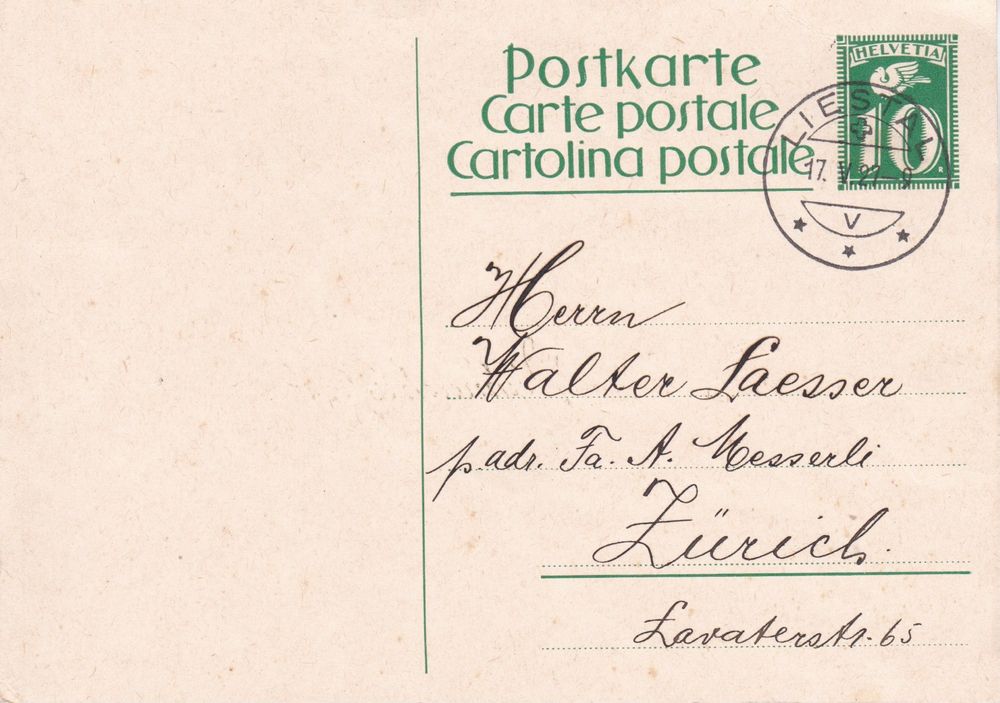 Postkarte
Carte postale
Cartolina postale
HELVETIA
10
LIESTAL
17. V. 27–9
V
Herrn
Walter Laesser
p. adr. Fa. A. Messerli
Zürich.
Lavaterstr. 65